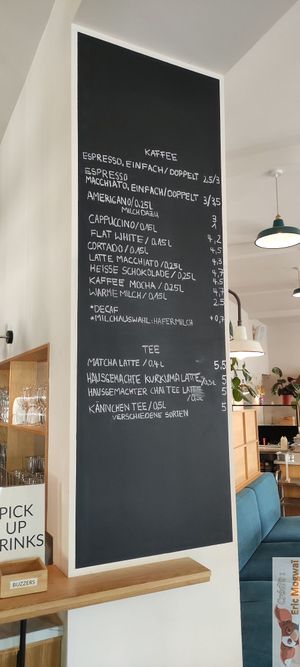 KAFFEE
ESPRESSO, EINFACH/DOPPELT 2,5/3
ESPRESSO
MACCHIATO, EINFACH/DOPPELT 3/3,5
AMERICANO/0,25L 3
MILCH DAZU 1
CAPPUCCINO/0,15L
FLAT WHITE/0,15L 4,2
CORTADO/0,15L 4,5
LATTE MACCHIATO/0,25L 4,3
HEISSE SCHOKOLADE/0,25L 4,7
KAFFEE MOCHA/0,25L 4,5
WARME MILCH/0,15L 4,7
2,5
*DECAF
*MILCHAUSWAHL: HAFERMILCH +0,7
TEE
MATCHA LATTE/0,4L 5,5
HAUSGEMACHTE KURKUMA LATTE/0,3L 5
HAUSGEMACHTER CHAI TEE LATTE/0,3L 5
KÄNNCHEN TEE/0,5L 5
VERSCHIEDENE SORTEN
PICK
UP
DRINKS
BUZZERS
Crédits :
Eric Mogwai